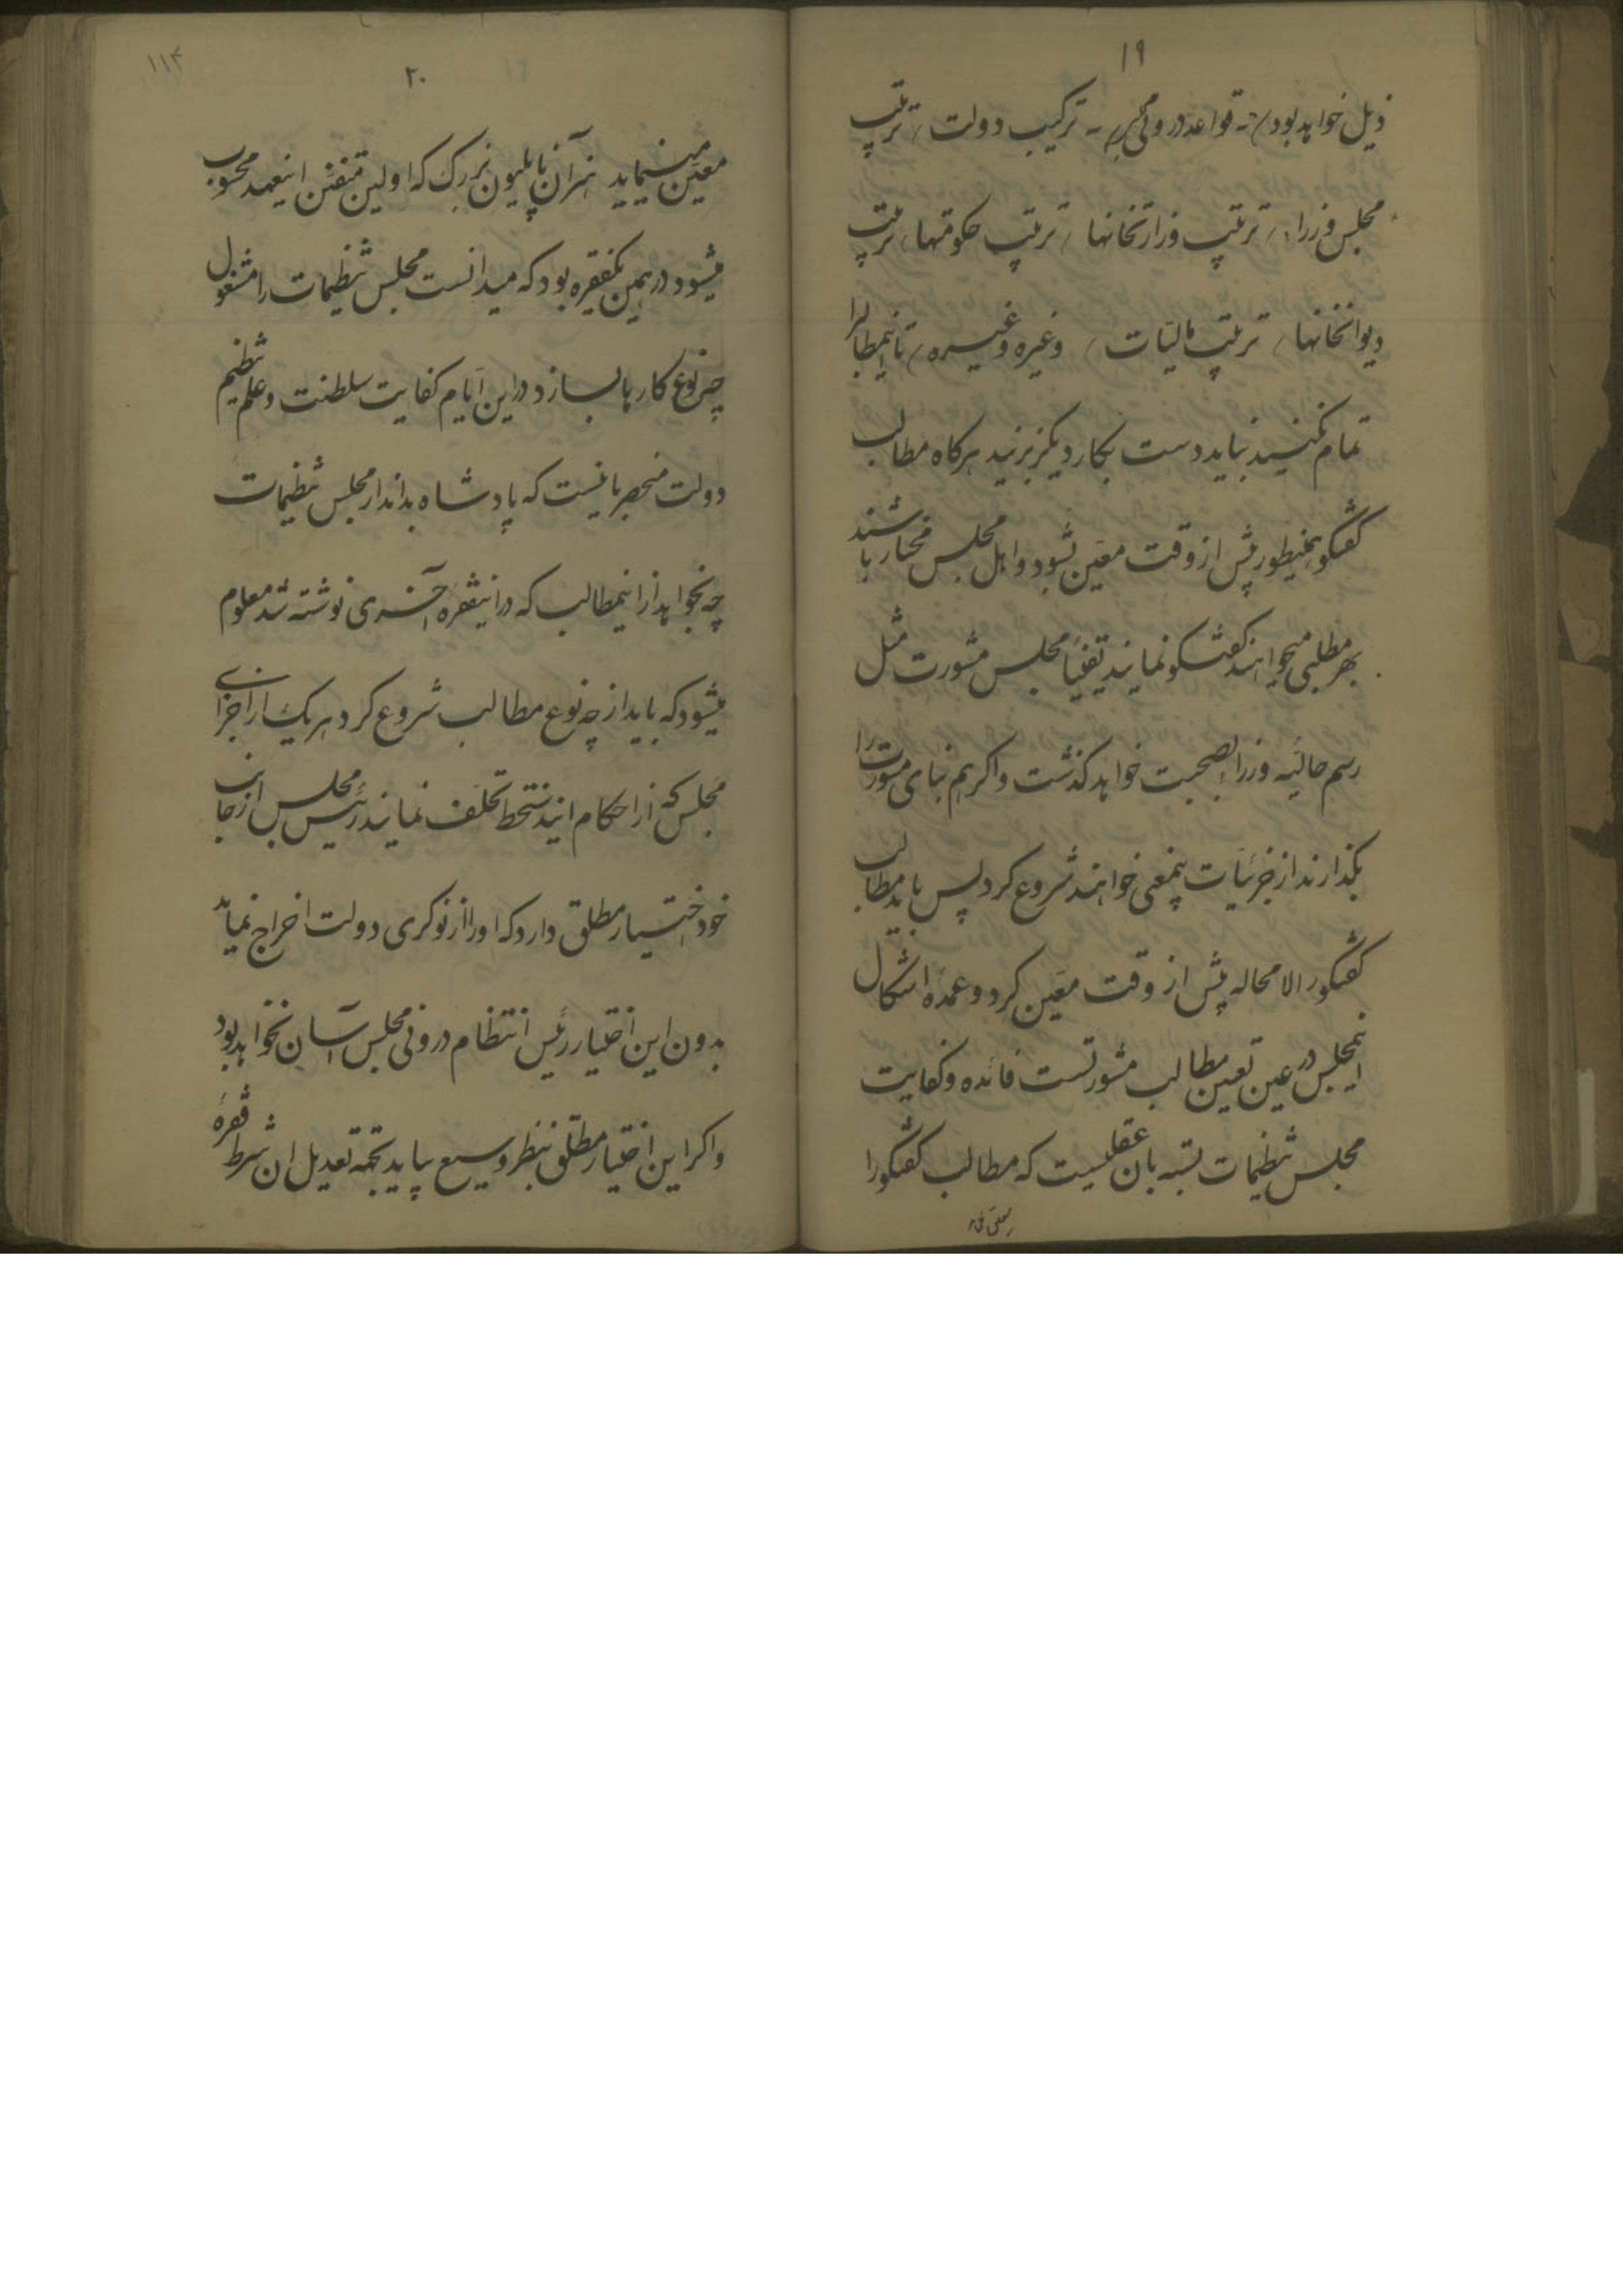 ۱۹
ذیل خواهد بود قواعد درونی مجلس ترکیب دولت ترتیب
مجلس وزراء ترتیب وزارتخانها ترتیب حکومتها ترتیب
دیوانخانها ترتیب مالیات وغیره وغیره تا اینمطالبرا
تمام نکنید نباید دست بکار دیگر بزنید هرکاه مطالب
کفتکو بهمینطور پیش از وقت معین نشود و اهل مجلس مختار باشند
بهر مطلبی میخواهند کفتکو نمایند یقیناً مجلس مشورت مثل
رسم حالیه وزرا بصحبت خواهد کذشت و اکر هم بنای مشورترا
بکذارند از جزئیات بیمعنی خواهند شروع کرد پس باید مطالب
کفتکو را لامحاله پیش از وقت معین کرد و عمده اشکال
اینمجلس در عین تعیین مطالب مشورتست فائده و کفایت
مجلس تنظیمات بسته بان عقلیست که مطالب کفتکو را
۲۰
۱۱۳
معین مینماید هنر آن ناپلیون بزرک که اولین متفنن اینعهد محسوب
میشود در همین یکفقره بود که میدانست مجلس تنظیمات را مشغول
چه نوع کارها بسازد در این ایام کفایت سلطنت و علم تنظیم
دولت منحصر باینست که پادشاه بداند از مجلس تنظیمات
چه بخواهد از اینمطالب که در اینفقره آخری نوشته شد معلوم
میشود که باید از چه نوع مطالب شروع کرد هر یک از اجزای
مجلس که از احکام اینسخط تخلف نمایند رئیس مجلس از جانب
خود اختیار مطلق دارد که او را از نوکری دولت اخراج نماید
بدون این اختیار رئیس انتظام درونی مجلس آسان نخواهد بود
و اکر این اختیار مطلق بنظر وسیع بیاید بجهة تعدیل ان شرط فقرهٔ